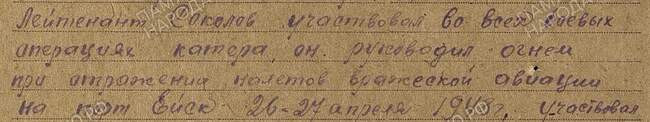 Лейтенант Соколов участвовал во всех боевых
операциях катера, он руководил огнем
при отражении налетов вражеской авиации
на порт Ейск 26-27 апреля 1943 г, участвовал